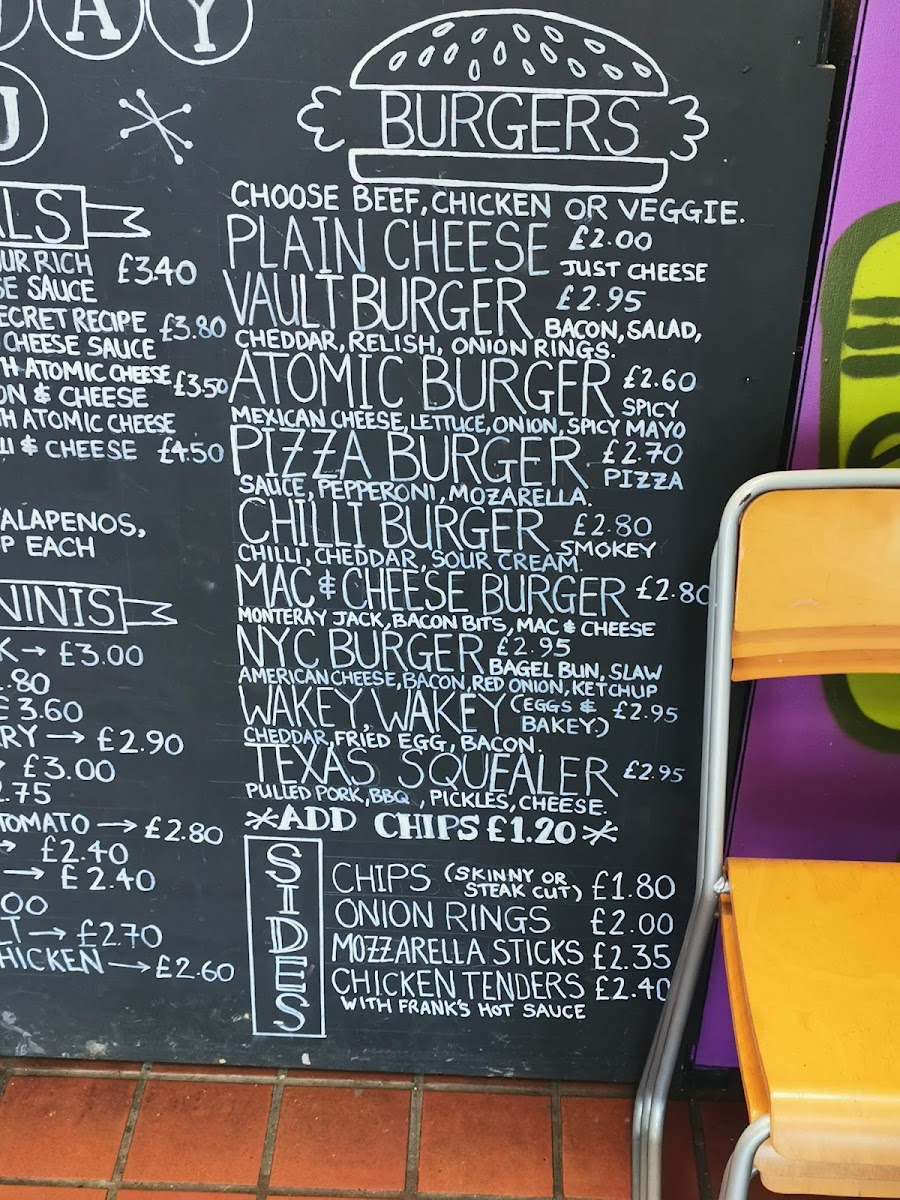 AY
U
ALS
OUR RICH £3.40
SE SAUCE
ECRET RECIPE £3.80
CHEESE SAUCE
TH ATOMIC CHEESE £3.50
ON & CHEESE
TH ATOMIC CHEESE
LLI & CHEESE £4.50
JALAPENOS,
P EACH
NINIS
K → £3.00
.80
E 3.60
RY → £2.90
→ £3.00
2.75
TOMATO → £2.80
→ £2.40
→ £2.40
00
LT → £2.70
HICKEN → £2.60
BURGERS
CHOOSE BEEF, CHICKEN OR VEGGIE.
PLAIN CHEESE £2.00
JUST CHEESE
VAULT BURGER £2.95
BACON, SALAD,
CHEDDAR, RELISH, ONION RINGS.
ATOMIC BURGER £2.60
SPICY
MEXICAN CHEESE, LETTUCE, ONION, SPICY MAYO
PIZZA BURGER £2.70
PIZZA
SAUCE, PEPPERONI, MOZARELLA.
CHILLI BURGER £2.80
SMOKEY
CHILLI, CHEDDAR, SOUR CREAM.
MAC & CHEESE BURGER £2.80
MONTERAY JACK, BACON BITS, MAC & CHEESE
NYC BURGER £2.95
BAGEL BUN, SLAW
AMERICAN CHEESE, BACON, RED ONION, KETCHUP
WAKEY, WAKEY (EGGS & BAKEY.) £2.95
CHEDDAR, FRIED EGG, BACON.
TEXAS SQUEALER £2.95
PULLED PORK, BBQ, PICKLES, CHEESE.
*ADD CHIPS £1.20*
SIDES
CHIPS (SKINNY OR STEAK CUT) £1.80
ONION RINGS £2.00
MOZZARELLA STICKS £2.35
CHICKEN TENDERS £2.40
WITH FRANK'S HOT SAUCE